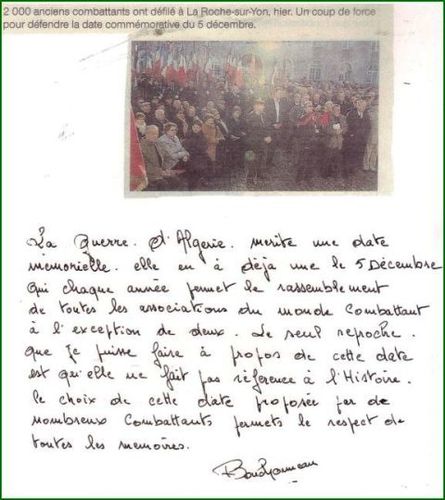 2 000 anciens combattants ont défilé à La Roche-sur-Yon, hier. Un coup de force
pour défendre la date commémorative du 5 décembre.
La Guerre d'Algerie. merite une date
memorielle. elle en à déja une le 5 Décembre
qui chaque année permet le rassemblement
de toutes les associations du monde Combattant
à l'exception de deux. Le seul reproche.
que je puisse faire à propos de cette date
est qu'elle ne fait pas réference à l'Histoire.
le choix de cette date proposée par de
nombreux Combattants permets le respect de
toutes les memoires.